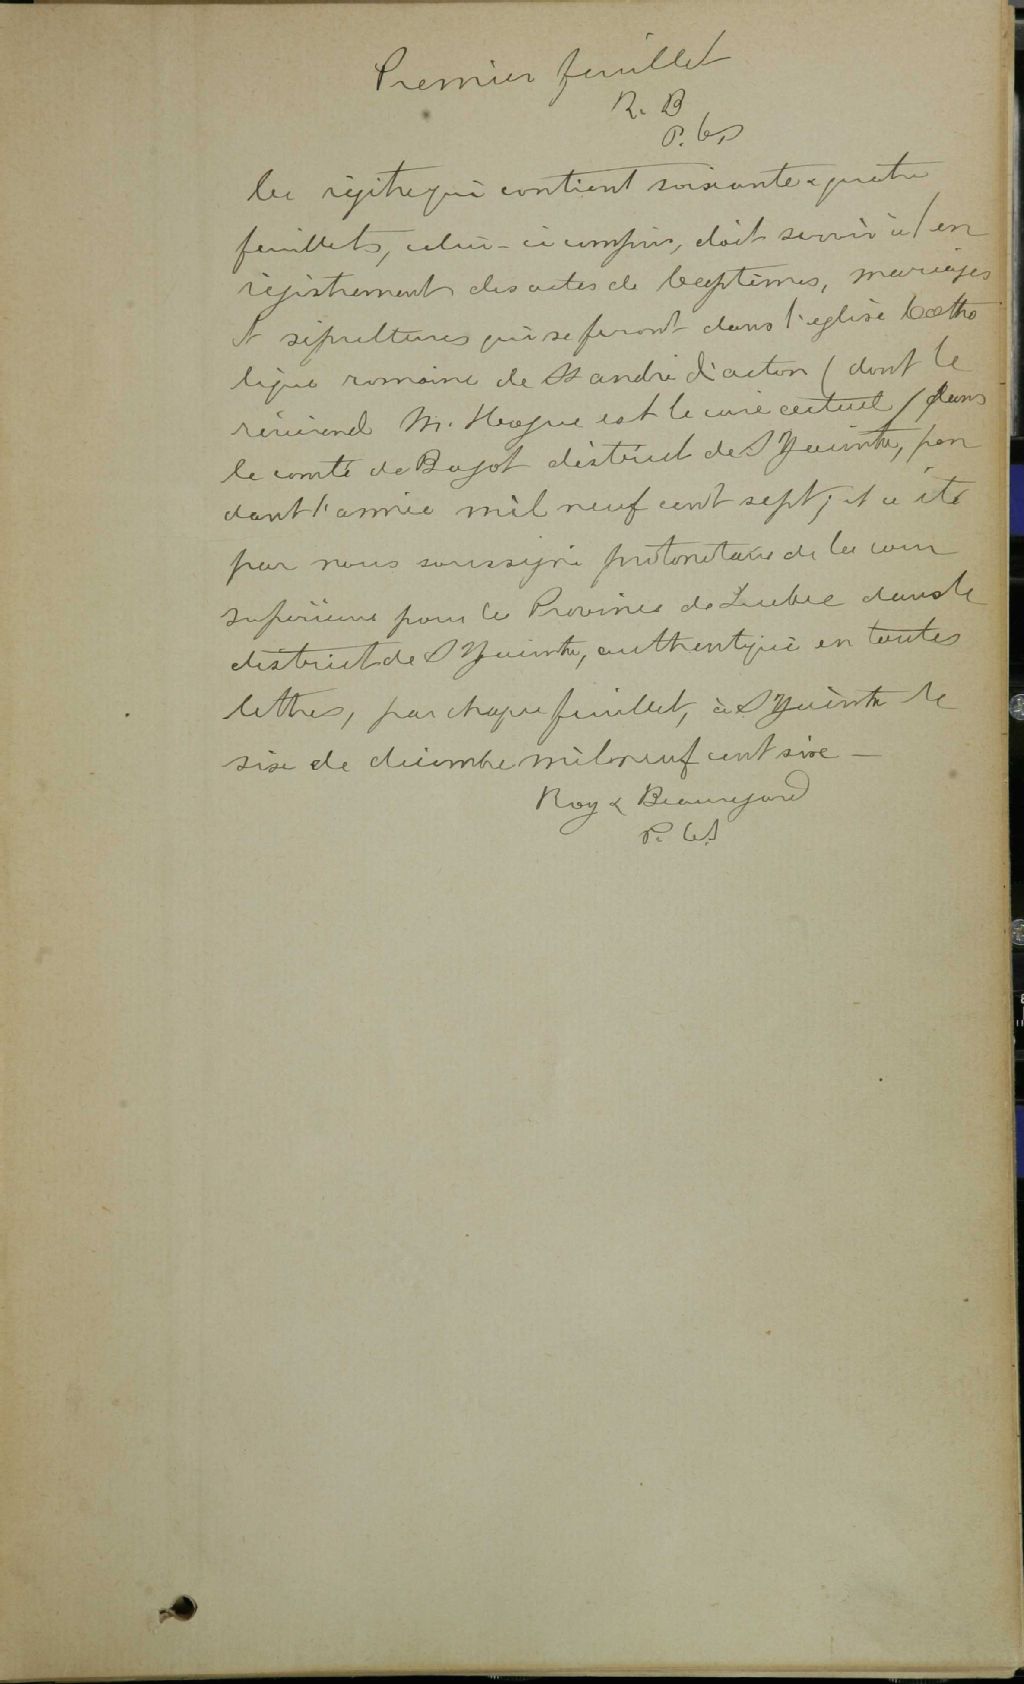 Premier feuillet
R. B
P. C. S
Ce régitre qui contient soixante & quatre
feuillets, celui-ci compris, doit servir à l'en
régistrement des actes de baptêmes, mariages
& sépultures qui se feront dans l'église Catho
lique romaine de St andré d'acton (dont le
révérend M. Hogue est le curé actuel) dans
le comté de Bagot district de St Hyacinthe, pen
dant l'année mil neuf cent sept; et a été
par nous soussigné protonotaire de la cour
supérieure pour la Province de Québec dans le
district de St Hyacinthe, authentiqué en toutes
lettres, par chaque feuillet, à St Hyacinthe le
six de décembre mil neuf cent six —
Roy & Beauregard
P. C. S.